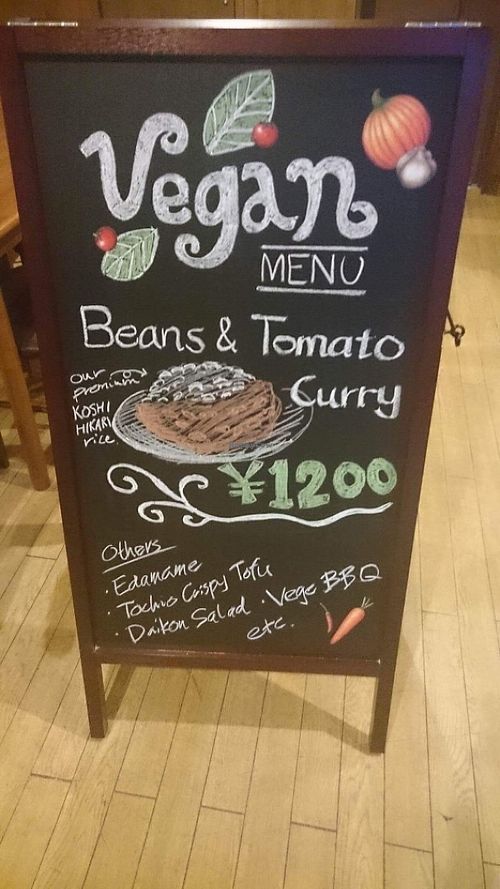 Vegan
MENU
Beans & Tomato
Curry
our
premium
KOSHI
HIKARI
rice.
¥1200
Others
· Edamame
· Tochio Crispy Tofu
· Daikon Salad · Vege BBQ
etc.